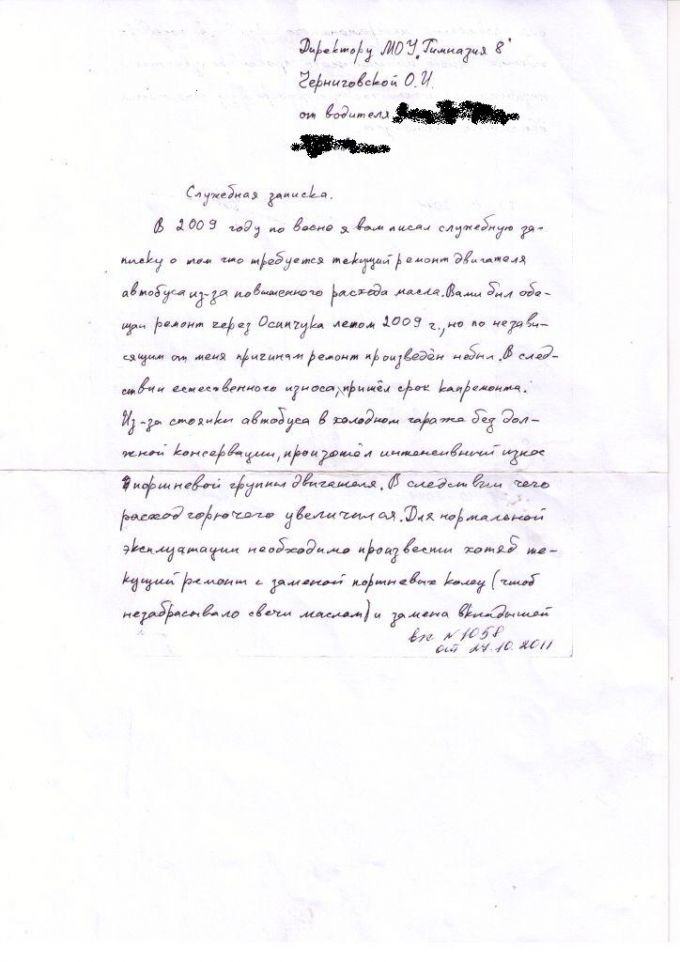 Директору МОУ „Гимназия 8"
Черниговской О.И.
от водителя
Служебная записка.
В 2009 году по весне я вам писал служебную за-
писку о том что требуется текущий ремонт двигателя
автобуса из-за повышенного расхода масла. Вами был обе-
щан ремонт через Осипчука летом 2009 г., но по незави-
сящим от меня причинам ремонт произведён небыл. В след-
ствии естественного износа, пришёл срок капремонта.
Из-за стоянки автобуса в холодном гараже без дол-
жной консервации, произошёл интенсивный износ
поршневой группы двигателя. В следствии чего
расход горючего увеличился. Для нормальной
эксплуатации необходимо произвести хотяб те-
кущий ремонт с заменой поршневых колец (чтоб
незабрасывало свечи маслом) и замена вкладышей
вх N 1058
от 27.10.2011